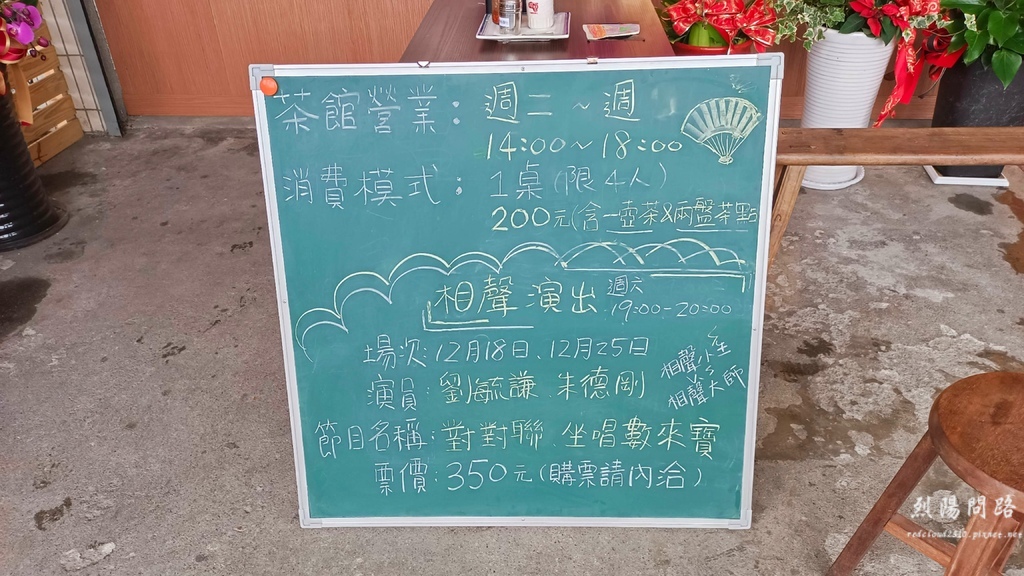 茶館營業：週二～週
14:00～18:00
消費模式：1桌(限4人)
200元(含一壺茶&兩盤茶點
相聲演出 週六 19:00-20:00
場次:12月18日、12月25日
演員:劉毓謙 朱德剛
相聲小生 VS 相聲大師
節目名稱:對對聯 坐唱數來寶
票價:350元(購票請內洽)
烈陽問路
redcloud2510.pixnet.net